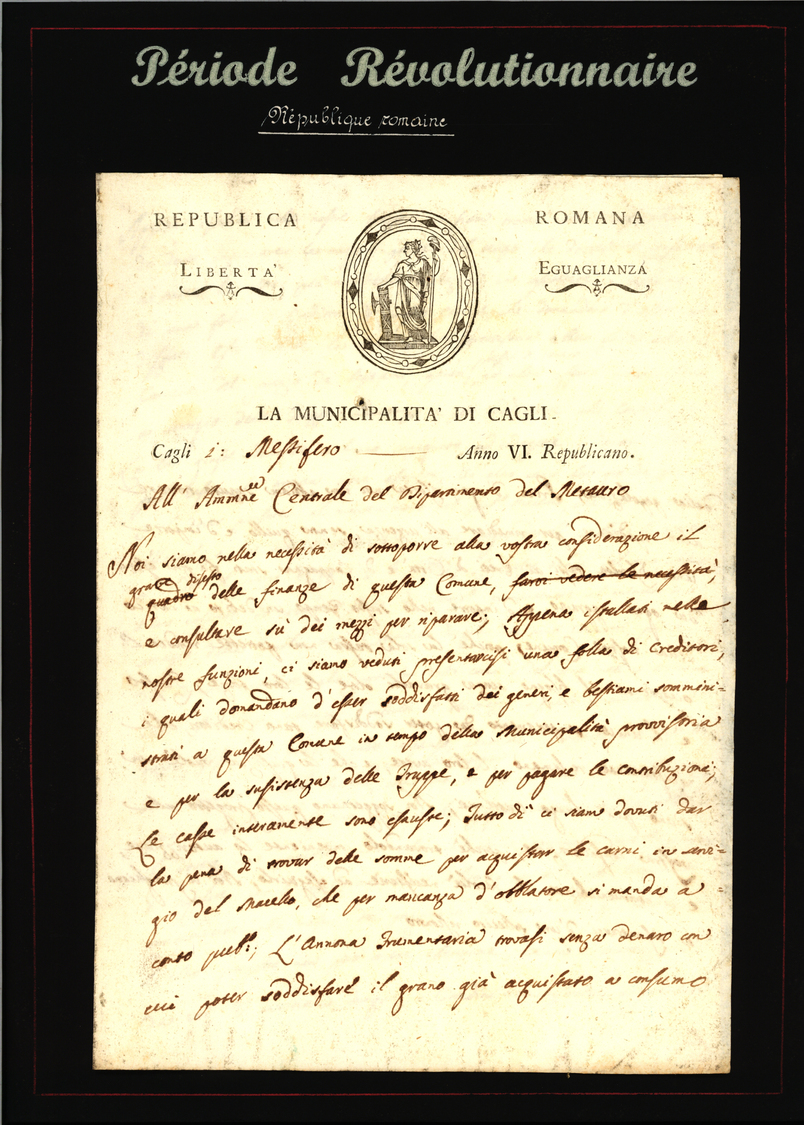 Période Révolutionnaire
République romaine
REPUBLICA ROMANA
LIBERTA' EGUAGLIANZA
LA MUNICIPALITA' DI CAGLI.
Cagli i: Messifero Anno VI. Republicano.
All' Ammne Centrale del Dipartimento del Metauro
Noi siamo nella necessità di sottoporre alla vostra considerazione il
grave disesto
quadro delle finanze di questa Comune, farvi vedere le necessità,
e consultare sù dei mezzi per riparare; Appena istallati nelle
nostre funzioni, ci siamo veduti presentarcisi una folla di Creditori,
i quali domandano d'esser soddisfatti dei generi, e bestiami sommini-
strati a questa Comune in tempo della Municipalità provvisoria
e per la susistenza delle Truppe, e per pagare le contribuzioni;
Le casse interamente sono esauste; Tutto dì ci siam dovuti dar
la pena di trovar delle somme per acquistar le carni in servi-
gio del Macello, che per mancanza d'obblatore si manda a
conto pubb.; L'Annona frumentaria trovasi senza denaro con
cui poter soddisfare il grano già acquistato a consumo